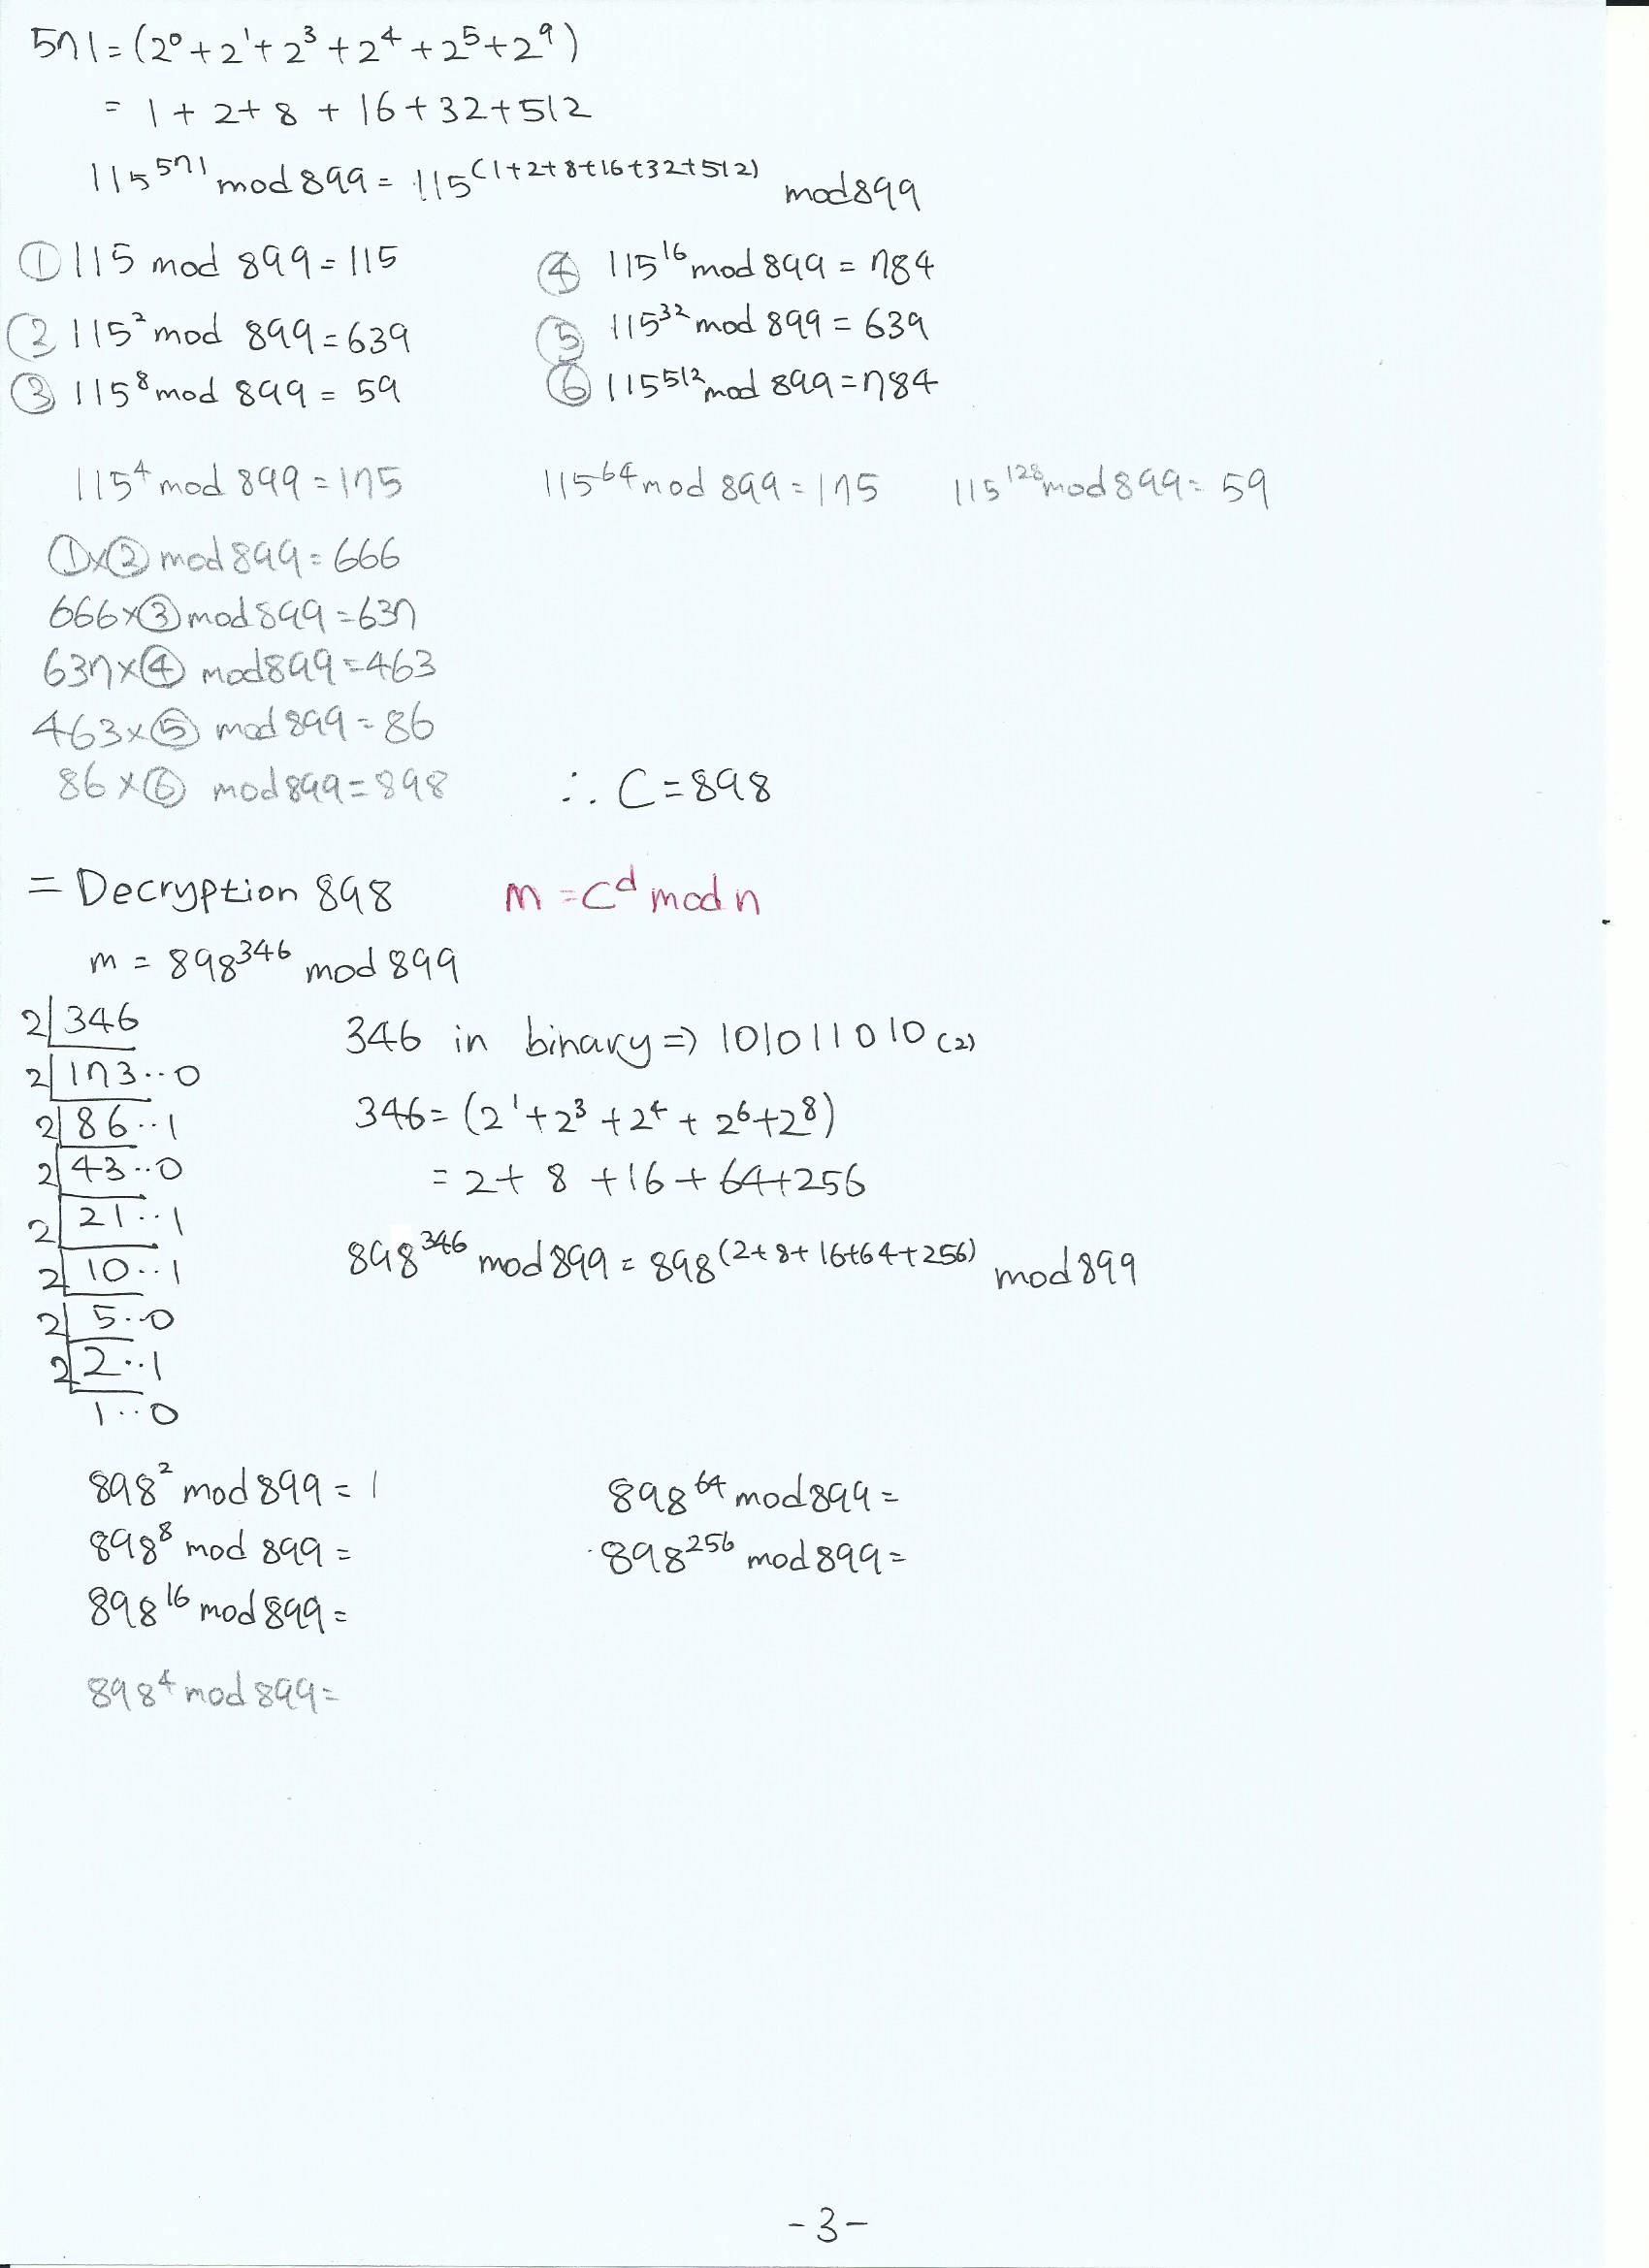 571=(2⁰+2¹+2³+2⁴+2⁵+2⁹)
= 1+2+8+16+32+512
115⁵⁷¹ mod 899 = 115⁽¹⁺²⁺⁸⁺¹⁶⁺³²⁺⁵¹²⁾ mod 899
① 115 mod 899 = 115
② 115² mod 899 = 639
③ 115⁸ mod 899 = 59
④ 115¹⁶ mod 899 = 784
⑤ 115³² mod 899 = 639
⑥ 115⁵¹² mod 899 = 784
115⁴ mod 899 = 175 115⁶⁴ mod 899 = 175 115¹²⁸ mod 899 = 59
①x② mod 899 = 666
666x③ mod 899 = 637
637x④ mod 899 = 463
463x⑤ mod 899 = 86
86x⑥ mod 899 = 898 ∴ C = 898
= Decryption 898 m = Cᵈ mod n
m = 898³⁴⁶ mod 899
2|346
2|173··0
2|86··1
2|43··0
2|21··1
2|10··1
2|5··0
2|2··1
1··0
346 in binary => 101011010₍₂₎
346 = (2¹+2³+2⁴+2⁶+2⁸)
= 2+8+16+64+256
898³⁴⁶ mod 899 = 898⁽²⁺⁸⁺¹⁶⁺⁶⁴⁺²⁵⁶⁾ mod 899
898² mod 899 = 1
898⁸ mod 899 =
898¹⁶ mod 899 =
898⁶⁴ mod 899 =
898²⁵⁶ mod 899 =
898⁴ mod 899 =
-3-